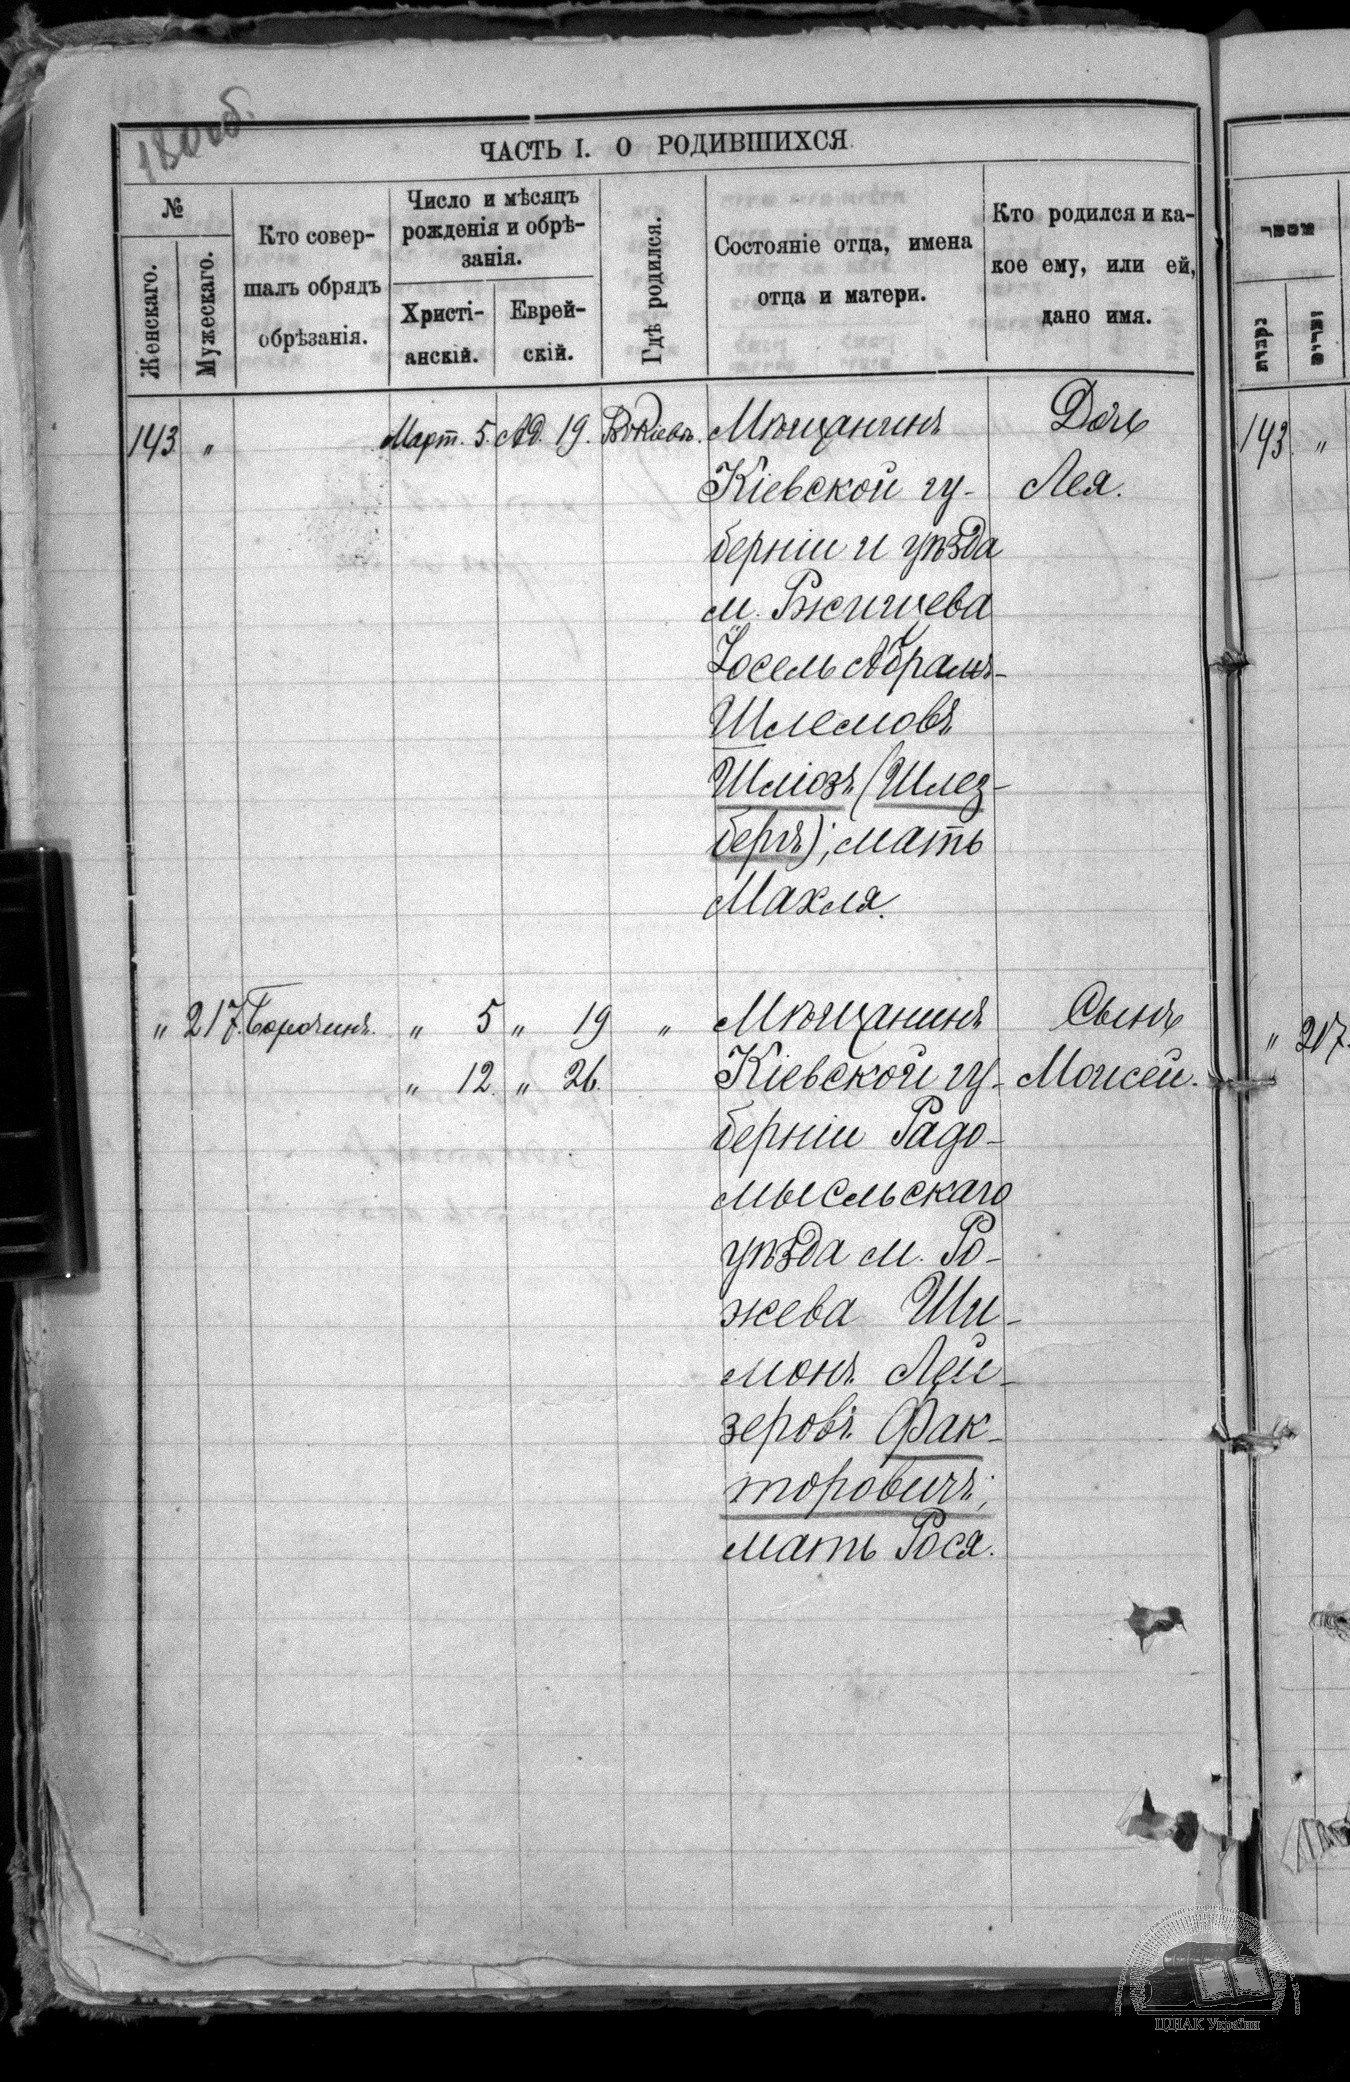 180 об.
ЧАСТЬ I. О РОДИВШИХСЯ
№
Женскаго.
Мужескаго.
Кто совер-
шалъ обрядъ
обрѣзанія.
Число и мѣсяцъ
рожденія и обрѣ-
занія.
Христі-
анскій.
Еврей-
скій.
Гдѣ родился.
Состояніе отца, имена
отца и матери.
Кто родился и ка-
кое ему, или ей,
дано имя.
143 " Март. 5. Ад. 19. Въ Кіевѣ. Мѣщанинъ Дочь
Кіевской гу- Лея.
берніи и уѣзда
м. Ржищева
Іосель Абрамъ-
Шлемовъ
Шліозъ (Шлез-
бергъ); мать
Махля.
" 217. " 5 " 19 " Мѣщанинъ Сынъ
" 12. " 26. Кіевской гу- Моисей.
берніи Радо-
мысльскаго
уѣзда м. Ро-
жева Ши-
монъ Лей-
зеровъ Фак-
торовичъ;
мать Рося.
מספר
נקבות
זכרים
143 "
" 217.
ЦДІАК України